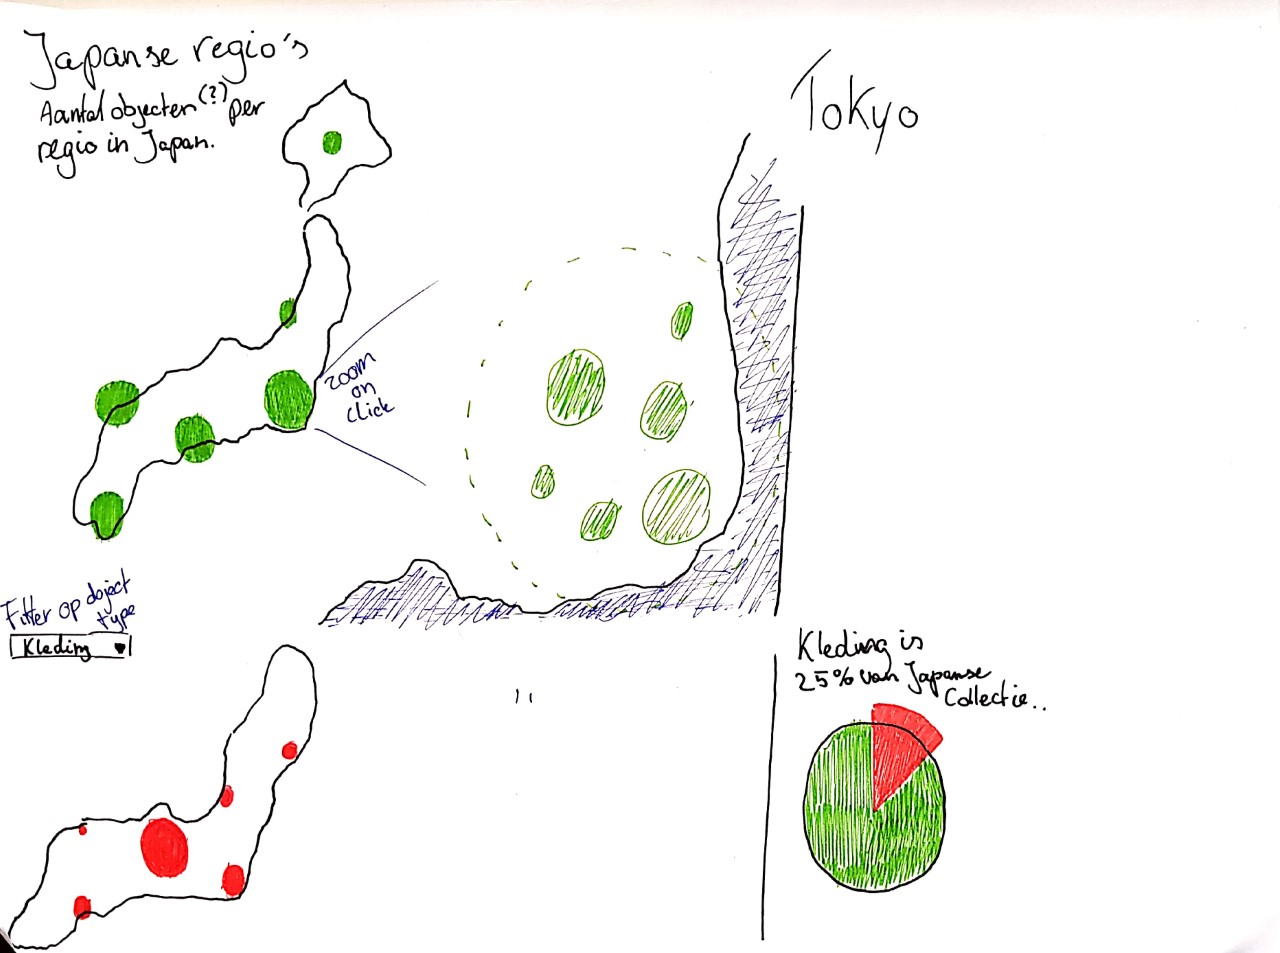 Japanse regio's
Aantal objecten (?) per
regio in Japan.
Tokyo
zoom
on
click
Filter op object
type
Kleding
"
Kleding is
25% van Japanse
Collectie..